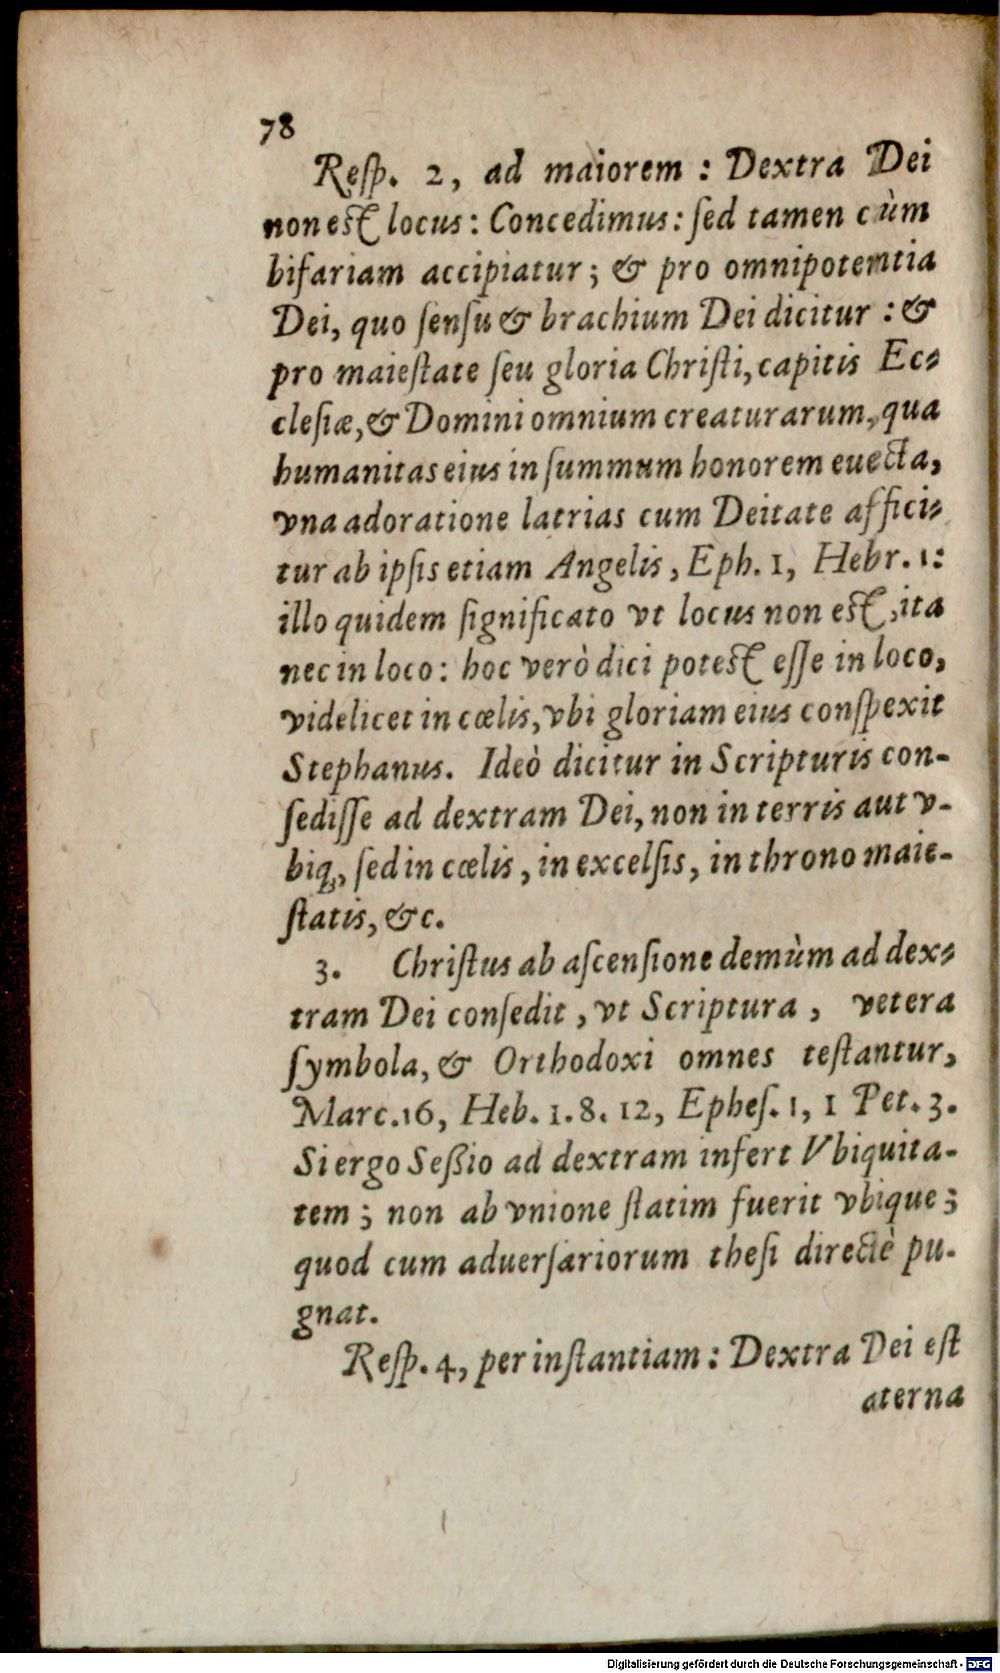 78
Reſp. 2, ad maiorem : Dextra Dei
non est locus: Concedimus: ſed tamen cùm
bifariam accipiatur; & pro omnipotentia
Dei, quo ſenſu & brachium Dei dicitur : &
pro maieſtate ſeu gloria Chriſti, capitis Ec-
cleſiæ, & Domini omnium creaturarum, qua
humanitas eius in ſummum honorem euecta,
vna adoratione latrias cum Deitate affici-
tur ab ipſis etiam Angelis, Eph. 1, Hebr. 1:
illo quidem ſignificato vt locus non est, ita
nec in loco: hoc verò dici potest eſſe in loco,
videlicet in cœlis, vbi gloriam eius conſpexit
Stephanus. Ideò dicitur in Scripturis con-
ſediſſe ad dextram Dei, non in terris aut v-
biq;, ſed in cœlis, in excelſis, in throno maie-
ſtatis, &c.
3. Chriſtus ab aſcenſione demùm ad dex-
tram Dei conſedit, vt Scriptura, vetera
ſymbola, & Orthodoxi omnes teſtantur,
Marc. 16, Heb. 1. 8. 12, Epheſ. 1, 1 Pet. 3.
Si ergo Seßio ad dextram infert Vbiquita-
tem; non ab vnione ſtatim fuerit vbique;
quod cum aduerſariorum theſi directè pu-
gnat.
Reſp. 4, per inſtantiam: Dextra Dei eſt
aterna
Digitalisierung gefördert durch die Deutsche Forschungsgemeinschaft - DFG